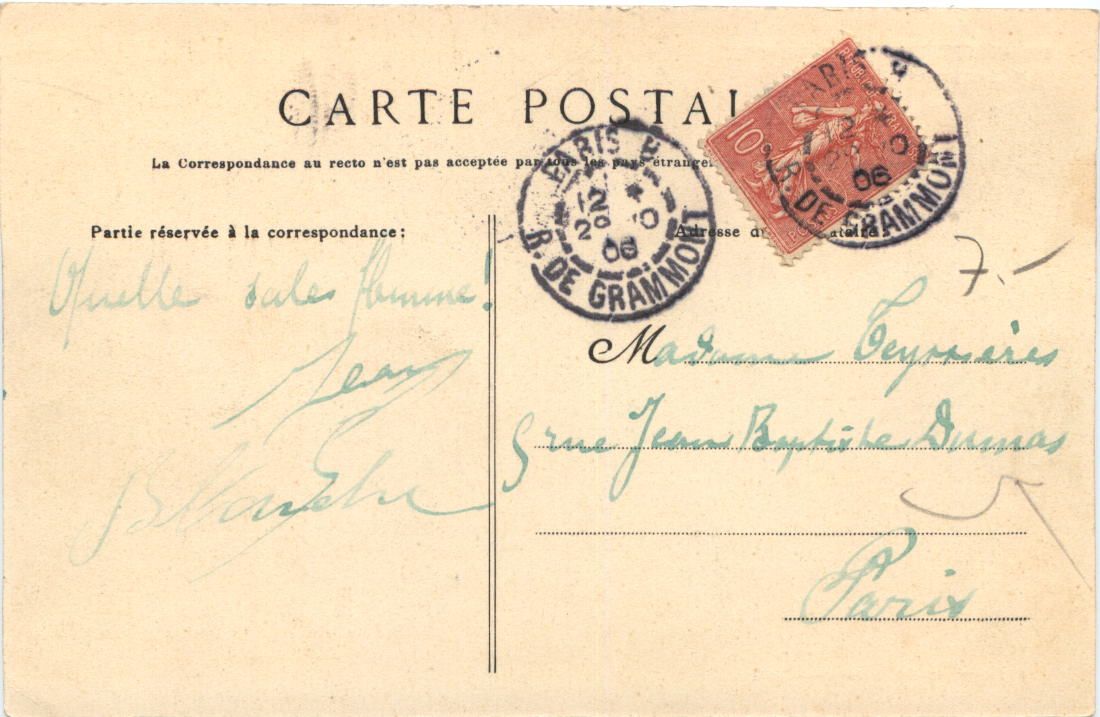 CARTE POSTAL
La Correspondance au recto n'est pas acceptée par tous les pays étranger
PARIS
12
2 10
06
R. DE GRAMMONT
10
PARIS
12
10
06
R. DE GRAMMONT
Partie réservée à la correspondance:
Adresse du
Quelle sales femme!
Jean
Blanche
7.-
Madame Teyssières
5 rue Jean Baptiste Dumas
Paris